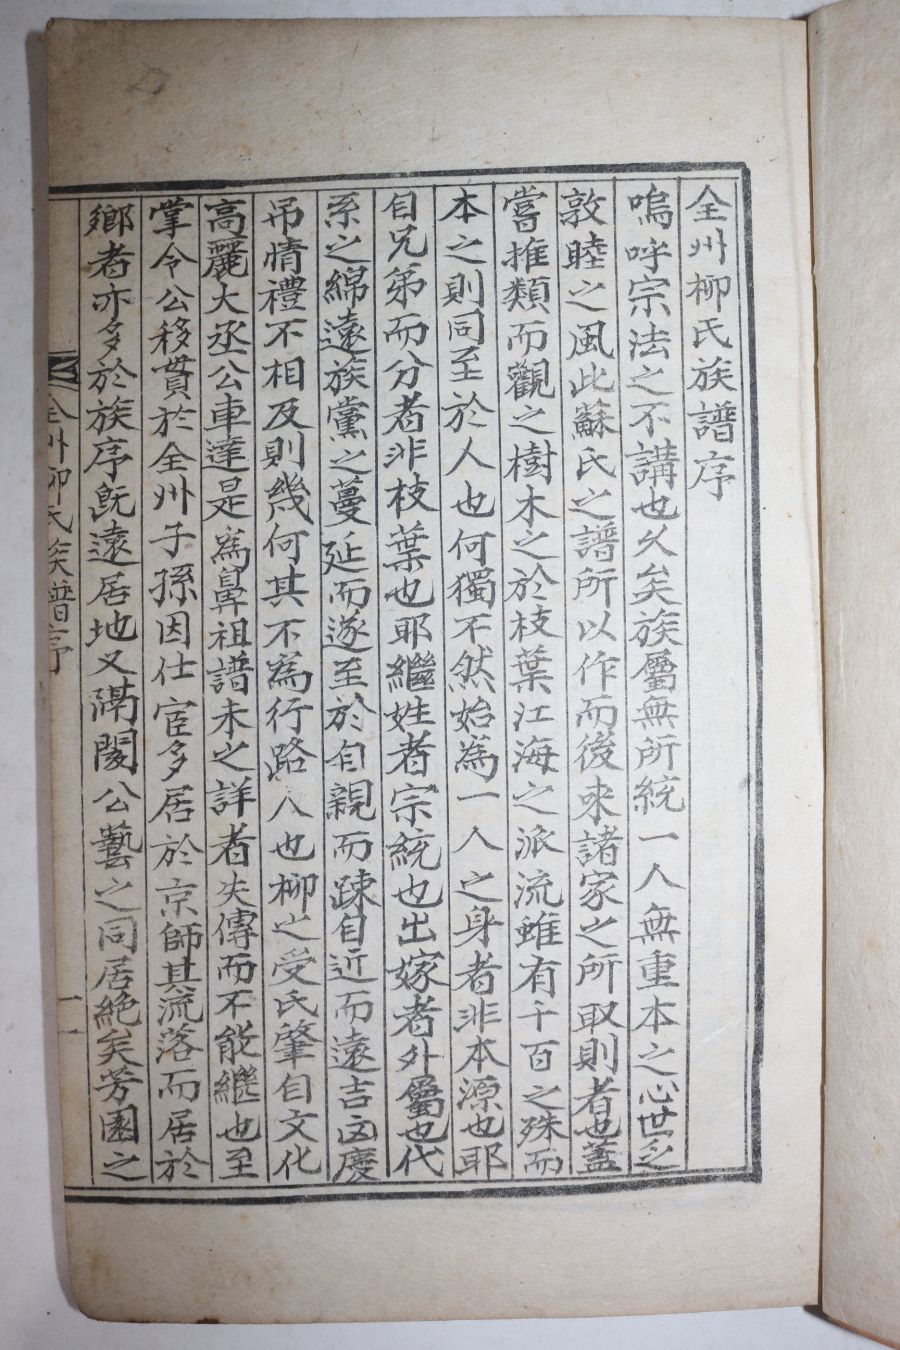 全州柳氏族譜序
嗚呼宗法之不講也久矣族屬無所統一人無重本之心世乏
敦睦之風此蘇氏之譜所以作而後來諸家之所取則者也蓋
嘗推類而觀之樹木之於枝葉江海之派流雖有千百之殊而
本之則同至於人也何獨不然始為一人之身者非本源也耶
自兄弟而分者非枝葉也耶繼姓者宗統也出嫁者外屬也代
系之綿遠族黨之蔓延而遂至於自親而踈自近而遠吉凶慶
吊情禮不相及則幾何其不為行路人也柳之受氏肇自文化
高麗大丞公車達是為鼻祖譜未之詳者失傳而不能繼也至
掌令公移貫於全州子孫因仕宦多居於京師其流落而居於
鄉者亦多於族序既遠居地又隔閡公藝之同居絶矣芳園之
全州柳氏族譜序